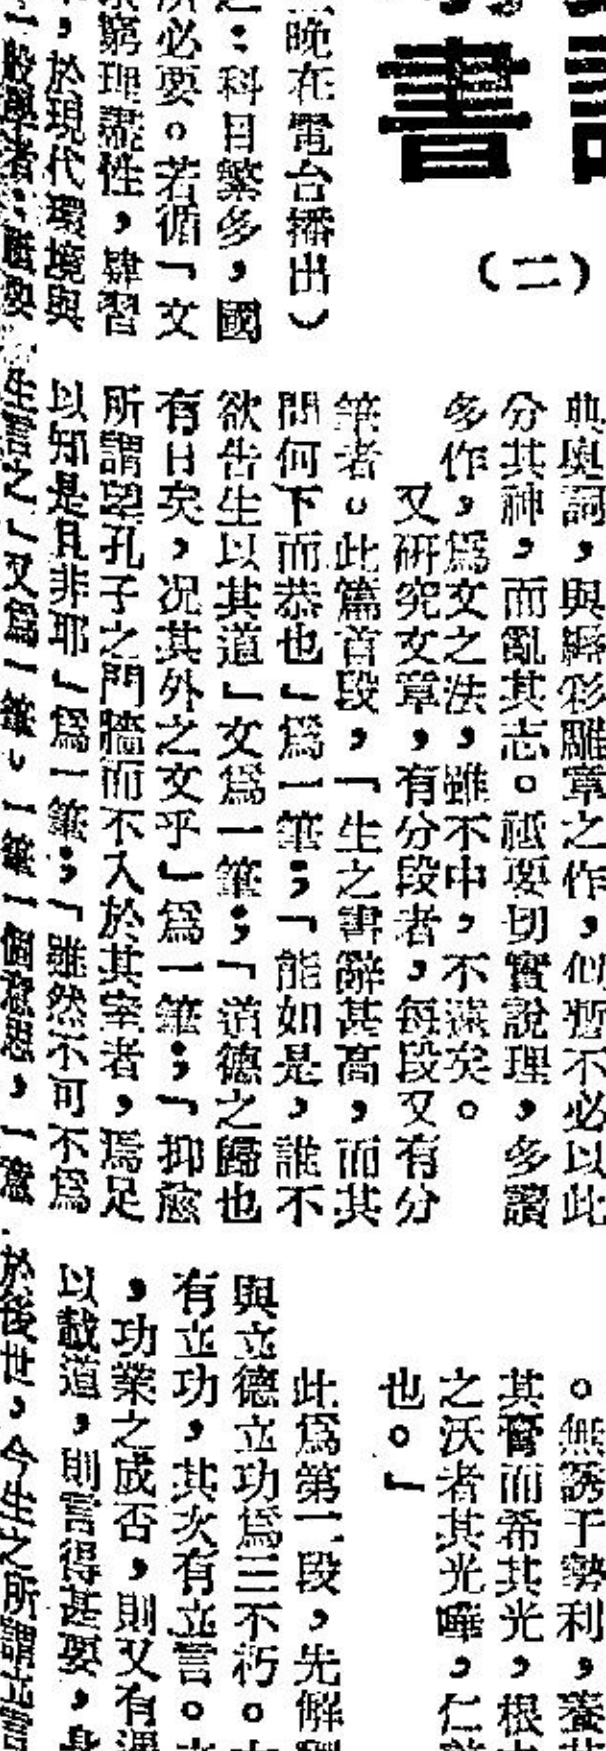 書
（二）
晚在電台播出）
：科目繁多，國
必要。若循「文
窮理盡性，肄習
，於現代環境與
一般學者：
典奥詞，與繩彩雕章之作，似暫不必以此
分其神，而亂其志。祗要切實說理，多讀
多作，爲文之法，雖不中，不遠矣。
又研究文章，有分段者，每段又有分
筆者。此篇首段，「生之書辭甚高，而其
問何下而恭也」爲一筆；「能如是，誰不
欲告生以其道」文爲一筆；「道德之歸也
有日矣，况其外之文乎」爲一筆；「抑愈
所謂望孔子之門牆而不入於其室者，焉足
以知是且非耶」爲一筆；「雖然不可不爲
生言之」又爲一筆。一筆一個意思，一意
。無誘于勢利，養其
其膏而希其光，根
之沃者其光曄，仁
也。」
此爲第二段，先解釋
與立德立功爲三不朽。
有立功，其次有立言。
，功業之成否，則又有
以載道，則言得甚要，身
於後世，今生之所謂立言